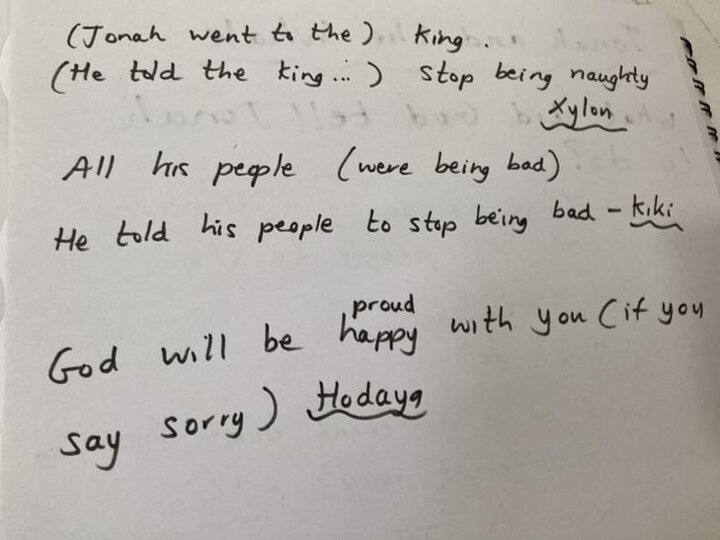 (Jonah went to the) King.
(He told the king...) Stop being naughty
Xylon
All his people (were being bad)
He told his people to stop being bad - Kiki
proud
God will be happy with you (if you
say sorry) Hodaya